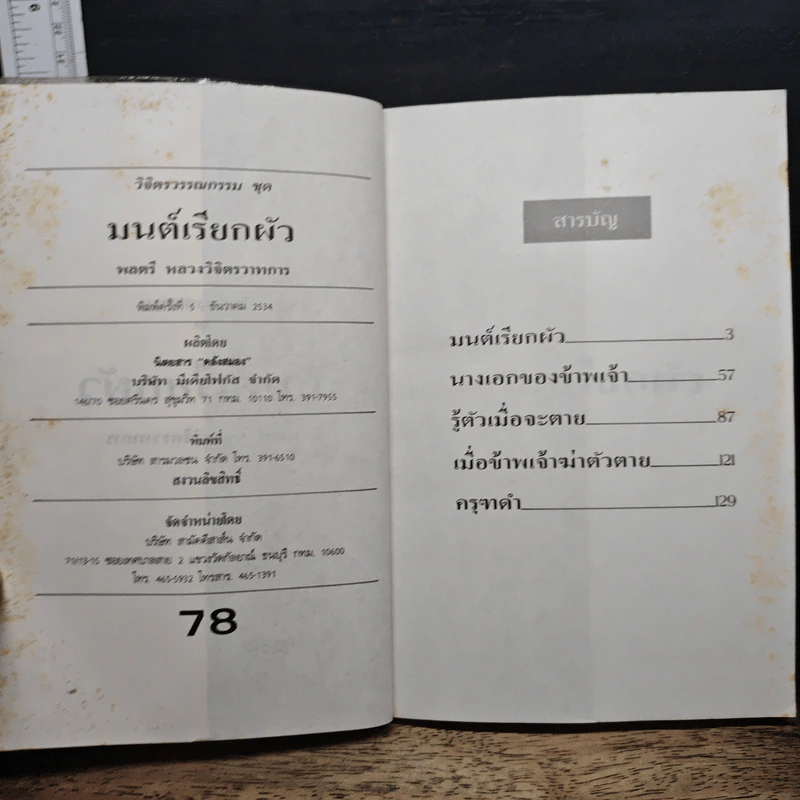 วิจิตรวรรณกรรม ชุด
มนต์เรียกผัว
พลตรี หลวงวิจิตรวาทการ
พิมพ์ครั้งที่ 5 ธันวาคม 2534
ผลิตโดย
นิตยสาร "คลังสมอง"
บริษัท มีเดียโฟกัส จำกัด
146/70 ซอยศรีนคร สุขุมวิท 71 กทม. 10110 โทร. 391-7955
พิมพ์ที่
บริษัท สารมวลชน จำกัด โทร. 391-6510
สงวนลิขสิทธิ์
จัดจำหน่ายโดย
บริษัท สามัคคีสาส์น จำกัด
ซอยเทศบาลสาย 2 แขวงวัดกัลยาณ์ ธนบุรี กทม. 10600
โทร. 465-5932 โทรสาร. 465-1391
78
สารบัญ
มนต์เรียกผัว 3
นางเอกของข้าพเจ้า 57
รู้ตัวเมื่อจะตาย 87
เมื่อข้าพเจ้าฆ่าตัวตาย 121
ครุฑดำ 129